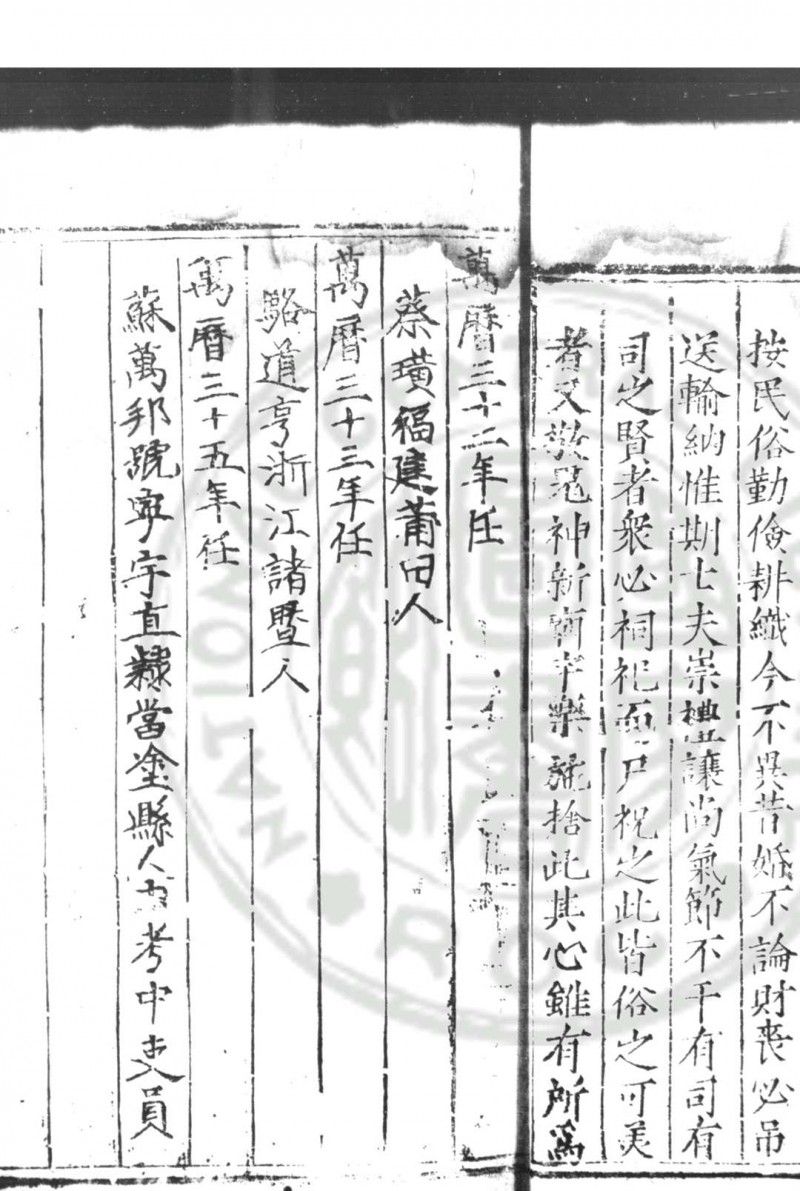 按民俗勤儉耕織今不異昔婚不論財喪必吊
送輸納惟期士夫崇禮讓尚氣節不干有司有
司之賢者衆必祠祀而尸祝之此皆俗之可美
者又敬鬼神新廟宇樂施捨此其心雖有所為
萬曆三十二年任
蔡璜福建莆田人
萬曆三十三年任
駱道亨浙江諸暨人
萬曆三十五年任
蘇萬邦號寧宇直隸當塗縣人考中吏員